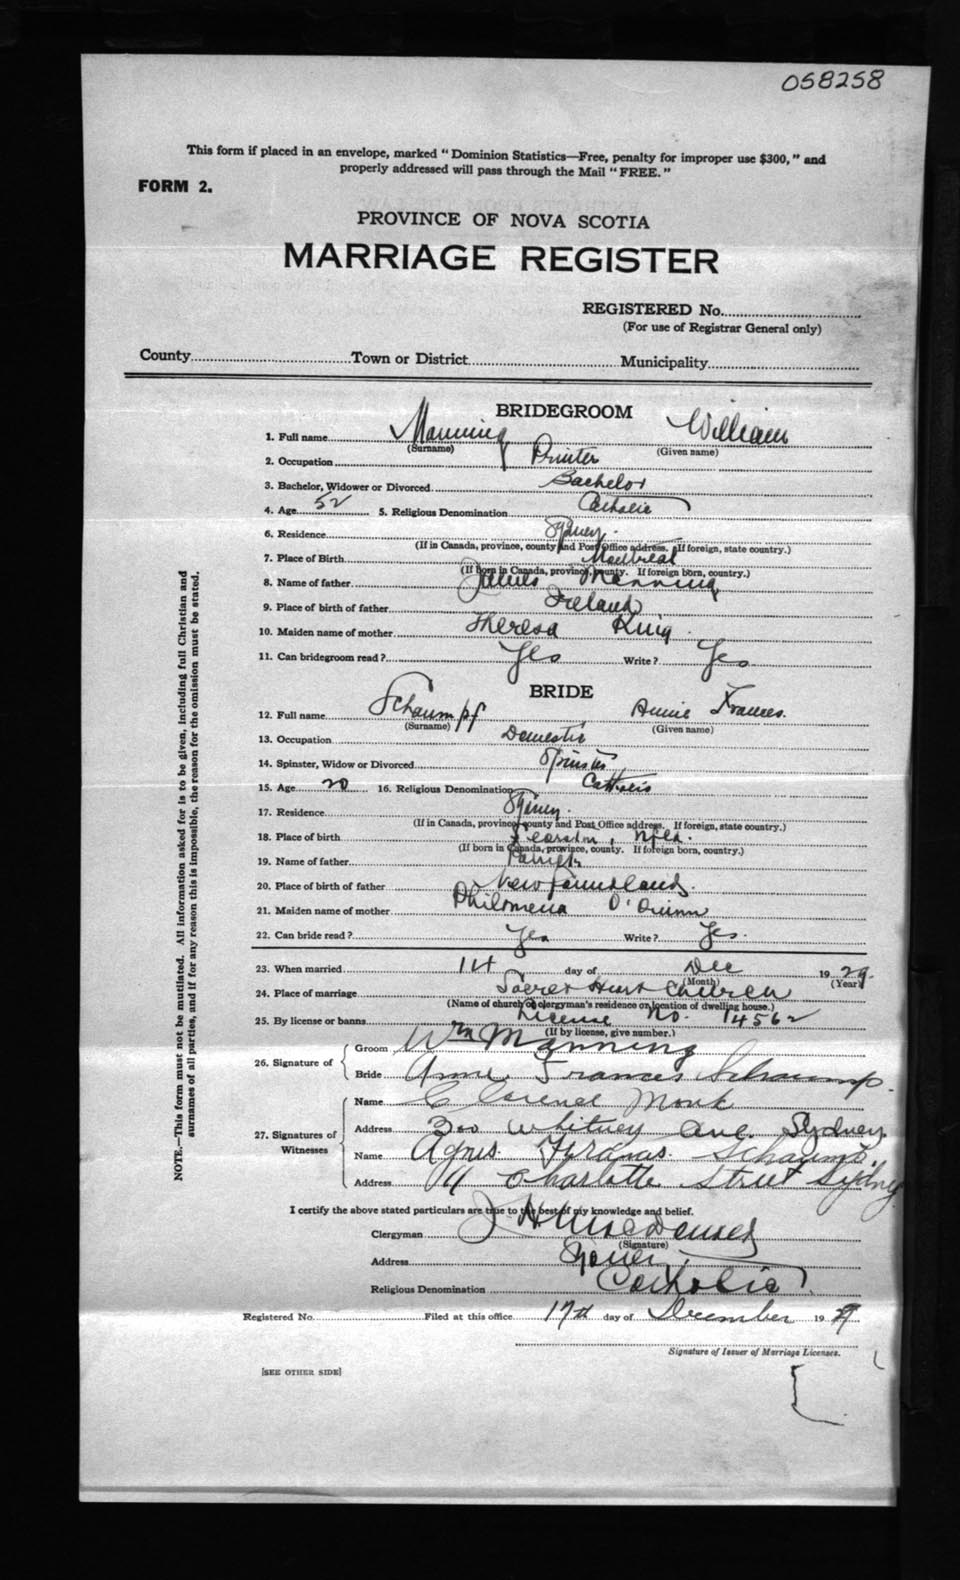 058258
This form if placed in an envelope, marked "Dominion Statistics—Free, penalty for improper use $300," and
properly addressed will pass through the Mail "FREE."
FORM 2.
PROVINCE OF NOVA SCOTIA
MARRIAGE REGISTER
REGISTERED No.
(For use of Registrar General only)
County Town or District Municipality
BRIDEGROOM
1. Full name Manning William
(Surname) (Given name)
2. Occupation Printer
3. Bachelor, Widower or Divorced Bachelor
4. Age 52 5. Religious Denomination Catholic
6. Residence Sydney.
(If in Canada, province, county and Post Office address. If foreign, state country.)
7. Place of Birth Montreal
(If born in Canada, province, county. If foreign born, country.)
8. Name of father Manning
9. Place of birth of father Ireland
10. Maiden name of mother Theresa King
11. Can bridegroom read? Yes Write? Yes
BRIDE
12. Full name Schaumpf Annie Frances.
(Surname) (Given name)
13. Occupation Domestic
14. Spinster, Widow or Divorced Spinster
15. Age 20 16. Religious Denomination Catholic
17. Residence Sydney.
(If in Canada, province, county and Post Office address. If foreign, state country.)
18. Place of birth Nfld.
(If born in Canada, province, county. If foreign born, country.)
19. Name of father Patrick
20. Place of birth of father Newfoundland.
21. Maiden name of mother Philomena O'Quinn
22. Can bride read? Yes Write? Yes.
23. When married 14 day of Dec 1929
(Month) (Year)
24. Place of marriage Sacret Heart Church
(Name of church or clergyman's residence or location of dwelling house.)
25. By license or banns License No. 14562
(If by license, give number.)
26. Signature of Groom Wm Manning
Bride Anne Frances Schaump.
27. Signatures of Witnesses
Name Clarence Monk
Address 300 Whitney Ave. Sydney
Name Agnes Schaump.
Address 11 Charlotte Street Sydney
I certify the above stated particulars are true to the best of my knowledge and belief.
Clergyman
(Signature)
Address Sydney
Religious Denomination Catholic
Registered No. Filed at this office 17th day of December 1929
Signature of Issuer of Marriage Licenses.
[SEE OTHER SIDE]
NOTE.—This form must not be mutilated. All information asked for is to be given, including full Christian and
surnames of all parties, and if for any reason this is impossible, the reason for the omission must be stated.